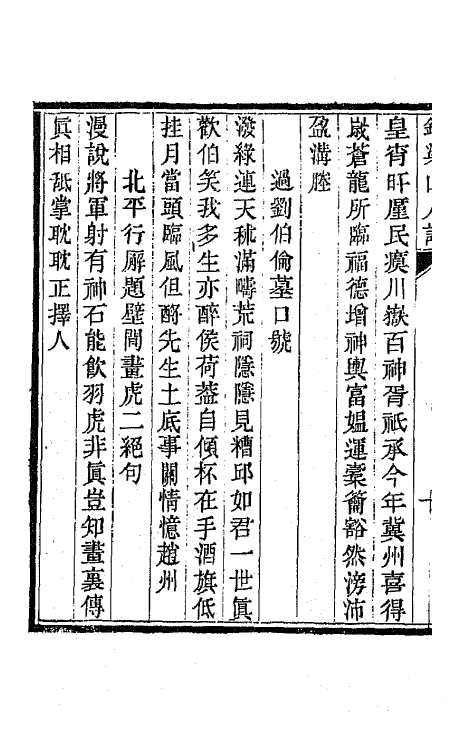 皇宵旰厪民瘼川嶽百神胥祇承今年冀州喜得
歲蒼龍所臨福德增神輿富媼運橐籥豁然滂沛
盈溝塍
過劉伯倫墓口號
潑綠連天秫滿疇荒祠隱隱見糟邱如君一世眞
歡伯笑我多生亦醉侯荷葢自傾杯在手酒旗低
挂月當頭臨風但酹先生土底事關情憶趙州
北平行廨題壁間畫虎二絕句
漫說將軍射有神石能飮羽虎非眞豈知畫裏傳
眞相舐掌耽耽正擇人